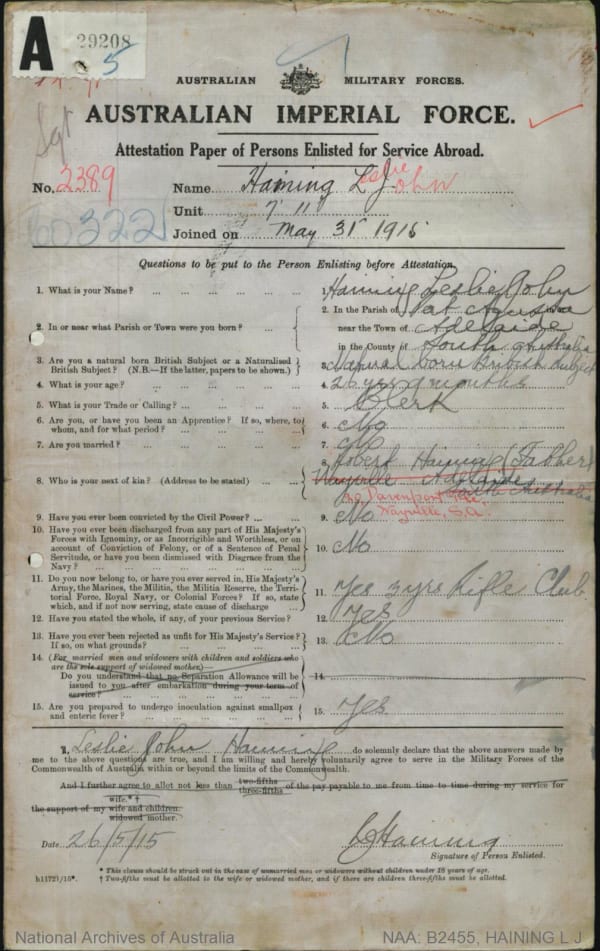 A 29208
5
AUSTRALIAN MILITARY FORCES.
AUSTRALIAN IMPERIAL FORCE.
Sgt
Attestation Paper of Persons Enlisted for Service Abroad.
No. 2389 Name Haining L J. eslie ohn
322 Unit 7' 11"
Joined on May 31 1915
Questions to be put to the Person Enlisting before Attestation.
1. What is your Name? ... 1. Haining Leslie John
2. In or near what Parish or Town were you born? ... 2. In the Parish of Port Augusta
near the Town of Adelaide
in the County of South Australia
3. Are you a natural born British Subject or a Naturalised British Subject? (N.B.—If the latter, papers to be shown.) 3. Natural born British Subject
4. What is your age? ... 4. 26 yrs 9 months
5. What is your Trade or Calling? ... 5. Clerk
6. Are you, or have you been an Apprentice? If so, where, to whom, and for what period? ... 6. No
7. Are you married? ... 7. No
8. Who is your next of kin? (Address to be stated) ... 8. Robert Haining (Father)
Wayville Adelaide
South Australia
Davenport Tce
Wayville, S.A.
9. Have you ever been convicted by the Civil Power? ... 9. No
10. Have you ever been discharged from any part of His Majesty's
Forces with Ignominy, or as Incorrigible and Worthless, or on
account of Conviction of Felony, or of a Sentence of Penal
Servitude, or have you been Dismissed with Disgrace from the
Navy? ... 10. No
11. Do you now belong to, or have you ever served in, His Majesty's
Army, the Marines, the Militia, the Militia Reserve, the Terri-
torial Force, Royal Navy, or Colonial Forces? If so, state
which, and if not now serving, state cause of discharge ... 11. Yes 3 yrs Rifle Club
12. Have you stated the whole, if any, of your previous Service? 12. Yes
13. Have you ever been rejected as unfit for His Majesty's Service?
If so, on what grounds? ... 13. No
14. (For married men and widowers with children and soldiers who
are the sole support of widowed mother)—
Do you understand that no Separation Allowance will be
issued to you after embarkation during your term of
service? ... 14.
15. Are you prepared to undergo inoculation against smallpox
and enteric fever? ... 15. Yes
I, Leslie John Haining do solemnly declare that the above answers made by
me to the above questions are true, and I am willing and hereby voluntarily agree to serve in the Military Forces of the
Commonwealth of Australia within or beyond the limits of the Commonwealth.
And I further agree to allot not less than two-fifths three-fifths of the pay payable to me from time to time during my service for
the support of my wife.* † wife and children. widowed mother.
Date 26/5/15 LJHaining
Signature of Person Enlisted.
* This clause should be struck out in the case of unmarried men or widowers without children under 18 years of age.
h11721/15*. † Two-fifths must be allotted to the wife or widowed mother, and if there are children three-fifths must be allotted.
National Archives of Australia NAA: B2455, HAINING L J